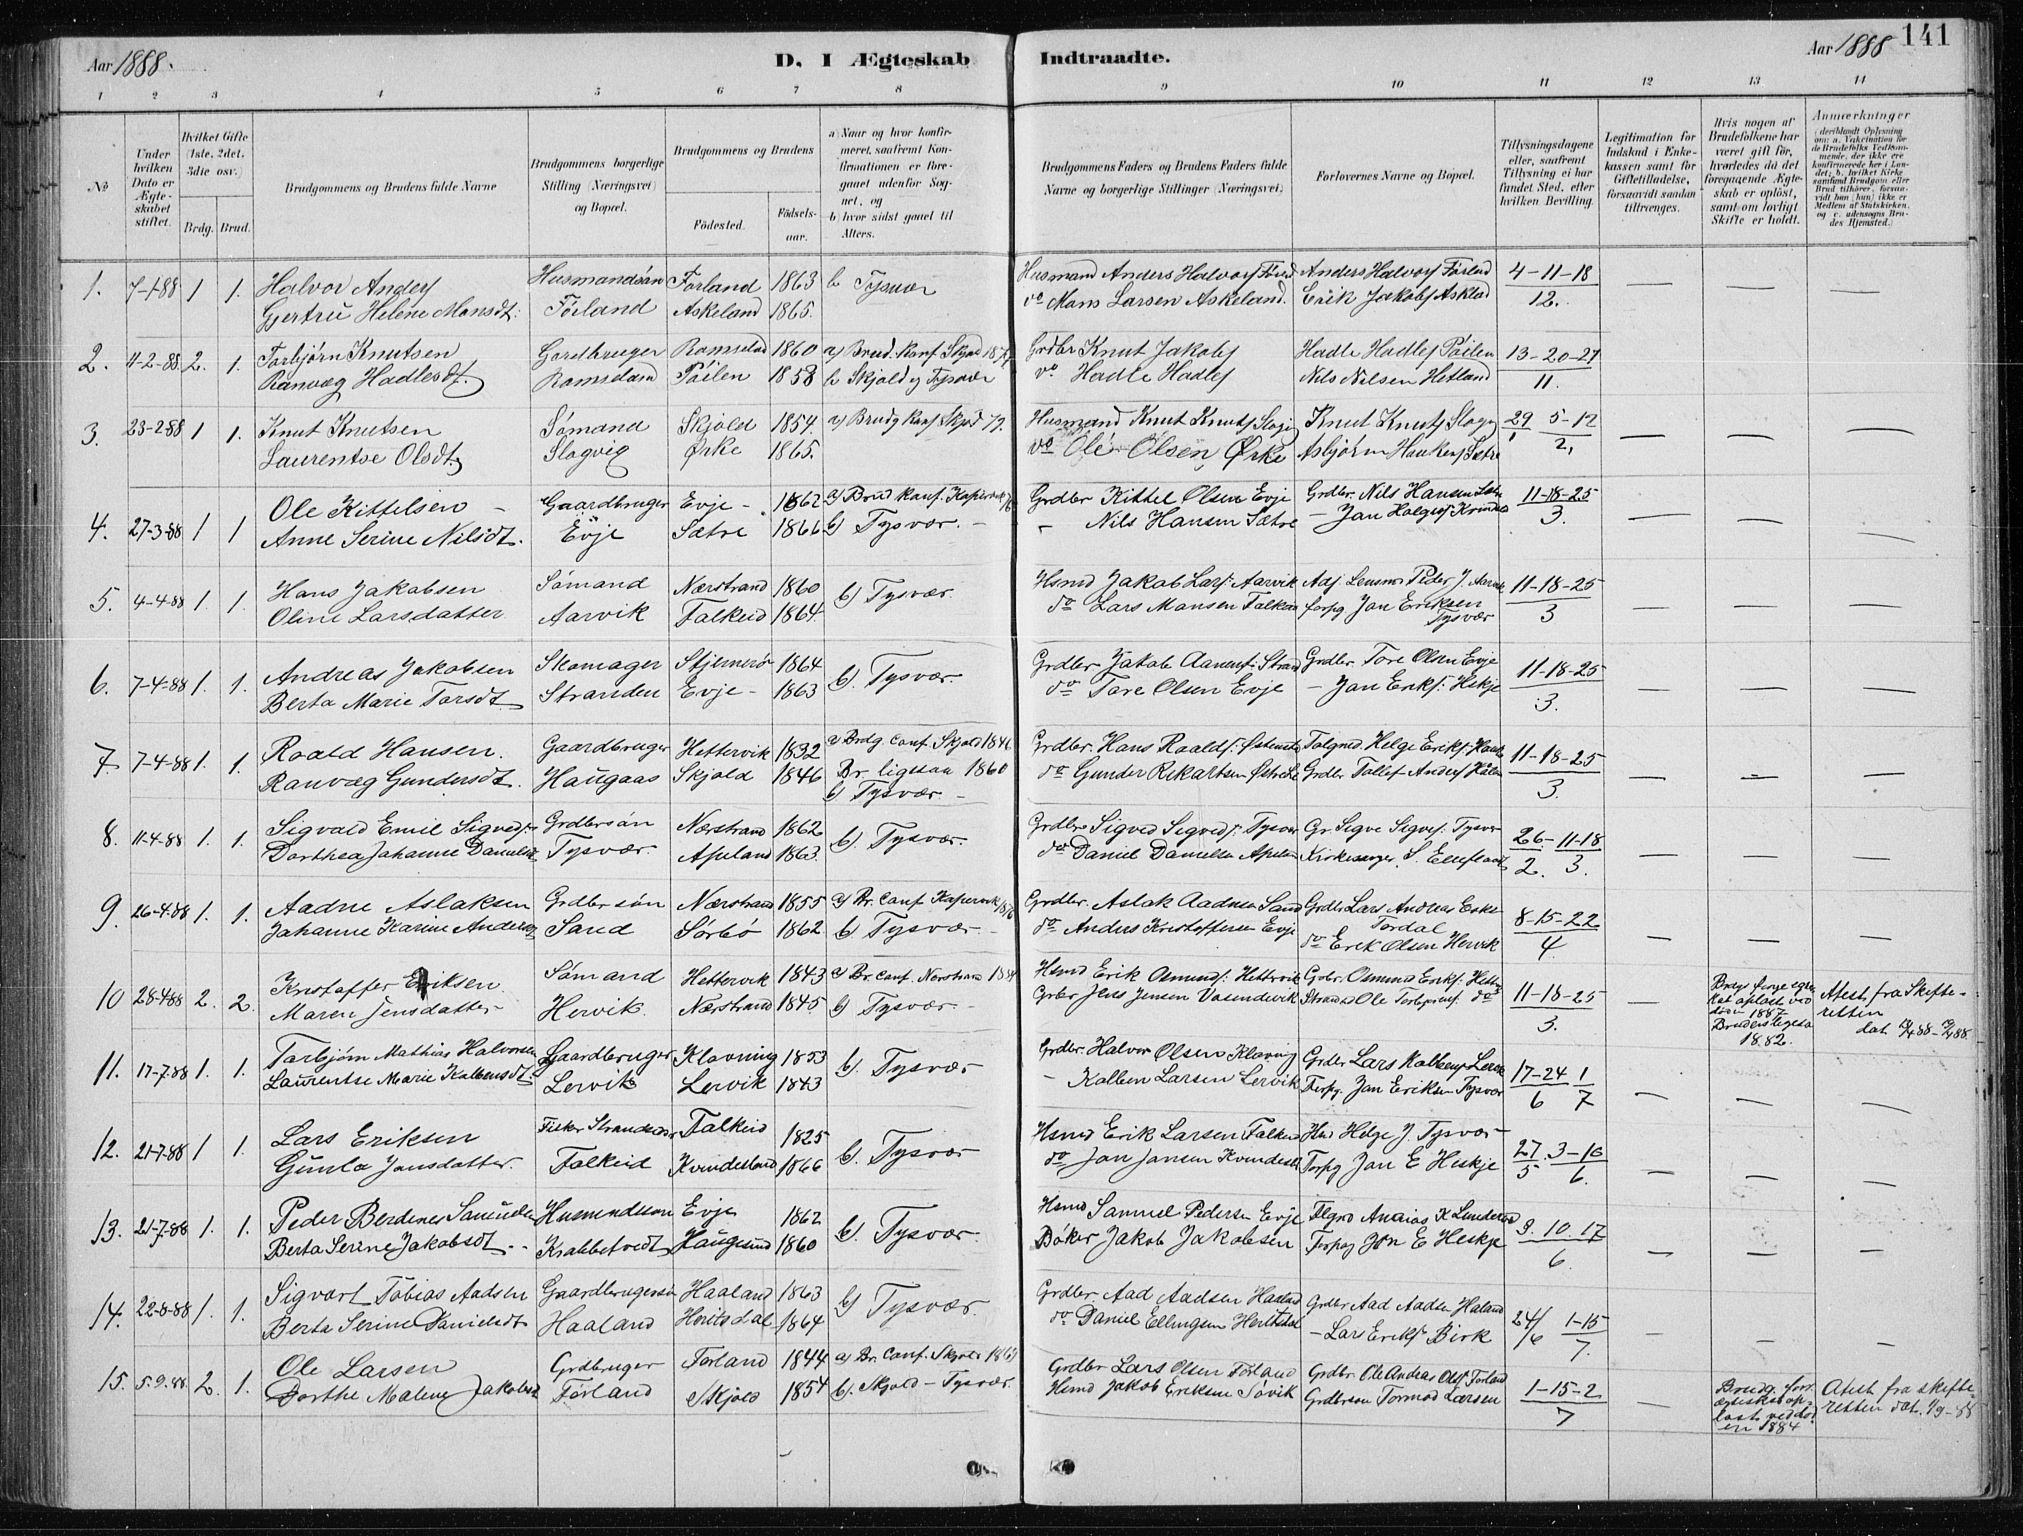 Aar 1888.
D. I Ægteskab Indtraadte.
Aar 1888 141
1 2 3 4 5 6 7 8 9 10 11 12 13 14
No
Under hvilken Dato er Ægteskabet stiftet.
Hvilket Gifte (1ste, 2det, 3die osv.)
Brdg. Brud.
Brudgommens og Brudens fulde Navne
Brudgommens borgerlige Stilling (Næringsvei) og Bopæl.
Brudgommens og Brudens
Födested. Födselsaar.
a) Naar og hvor konfirmeret, saafremt Konfirmationen er foregaaet udenfor Sognet, og
b) hvor sidst gaaet til Alters.
Brudgommens Faders og Brudens Faders fulde Navne og borgerlige Stillinger (Næringsvei).
Forlovernes Navne og Bopæl.
Tillysningsdagene eller, saafremt Tillysning ei har fundet Sted, efter hvilken Bevilling.
Legitimation for Indskud i Enkekassen samt for Giftetilladelse, forsaavidt saadan tiltrænges.
Hvis nogen af Brudefolkene har været gift för, hvorledes da det foregaaende Ægteskab er oplöst, samt om lovligt Skifte er holdt.
Anmærkninger
(deriblandt Oplysning om: a. Vaccination for de Brudefolks Vedkommende, der ikke ere konfirmerede her i Landet; b. hvilket Kirkesamfund Brudgom eller Brud tilhörer, forsaavidt han (hun) ikke er Medlem af Statskirken, og c. udensogns Brudes Hjemsted.)
1. 7-1-88 1 1. Halvor Anders Husmandssøn Førland 1863 b Tysvær Husmand Anders Halvors Anders Halvors Førlnd 4-11-18
Gjertru Helene Monsdt. Førland Askeland 1865. do Mons Larsen Askeland. Erik Jakobs 12.
2. 11-2-88. 2. 1. Torbjørn Knutsen Gardbruger 1860 a) Brud. Konf. Skjold Grdbr Knut Jakobs Hadle Hadles 13-20-27
Ranvæg Hadlesdt. 1858 b Skjold og Tysvær do Hadle Hadles Nils Nilsen Hetland 11.
3. 23-2-88 1 1. Knut Knutsen Sømand Skjold 1854. a) Brudg Konf Skjold 79. Husmand Knut Knuts Knut Knuts 29 5-12
Laurentse Olsdt. Slogvig Ørke 1865. do Ole Olsen Ørke Asbjørn Haukens Sætre 1 2,
4. 27-3-88 1 1 Ole Kittelsen Gaardbruger Evje 1862 a) Brud konf. Grdbr Kittel Olsen Evje Grdbr. Nils Hansen Sætre 11-18-25
Anne Serine Nilsdt. Evje Sætre 1866 b) Tysvær. Nils Hansen Sætre Jan 3.
5. 4-4-88 1. 1. Hans Jakobsen Sømand Nærstrand 1860 b) Tysvær. Hsmd Jakob Lars. Aarvik Peder J. 11-18-25
Oline Larsdatter Aarvik Falkeid 1864. do Lars Monsen forpg Jan Eriksen Tysvær 3
6. 7-4-88 1. 1. Andreas Jakobsen Skomager Stjernerø 1864 b). Tysvær. Grdbr. Jakob Strand Grdbr. Tore Olsen Evje 11-18-25
Berta Marie Torsdt. Stranden Evje 1863 do Tore Olsen Evje Jan Eriks. Heskje 3.
7. 7-4-88 1. 1. Roald Hansen. Gaardbruger Hettervik 1832 a) Brdg. conf. Skjold 1846 Grdbr. Hans Roalds. Helge Eriks. 11-18-25
Ranvæg Gundersdt. Haugaas Skjold 1846 Br. ligesaa 1860 do Gunder Rikartsen Grdbr Tollef Anders 3.
b) Tysvær
8. 11-4-88 1. 1. Sigvald Emil Sigveds. Grdbrsøn Nærstrand 1862 b). Tysvær. Grdbr Sigved Sigveds. Tysvær Gr. Sigve Sigves. Tysvær 26- 11-18
Dorthea Johanne Danielsdt Tysvær. Apeland 1863. do Daniel Danielsen Apeland Kirkesanger 2. 3.
9. 26-4-88 1. 1. Aadne Aslaksen Grdbrsøn Nærstrand 1855 a) Br. conf Grdbr. Aslak Aadnesen Sand Grdbr Lars Andreas 8-15-22
Johanne Karine Andersdt Sand Sørbø 1862 b) Tysvær. do Anders Kristoffersen Evje do Erik Olsen Hervik 4.
10 28-4-88 2. 2. Kristoffer Eriksen Sømand Hettervik 1843 a) Br. conf. Nærstrand Hsmd Erik Osmunds. Hettervik Grbr. Osmund Eriks. 11-18-25
Maren Jensdatter Hervik. Nærstrand 1845 b) Tysvær. Grbr Jens Jensen Ole Torbjørns. do 3.
1887 1882. Atest. fra Skifteretten
11. 17-7-88 1. 1. Torbjørn Mathias Halvorsen Gaardbruger Klovning 1853 b). Tysvær Grdbr. Halvor Olsen Klovning Grdbr Lars Kolbens Lervik 17-24 1
Laurentse Marie Kolbensdt Lervik Lervik 1843 Kolben Larsen Lervik Forpg. Jan Eriksen Tysvær 6 7
12. 21-7-88 1 1. Lars Eriksen Fisker Falkeid 1825 b. Tysvær Hsmd Erik Larsen Falkeid Helge J. Tysvær 27. 3-10
Gunla Jansdatter. Falkeid Kvindesland 1866 do Jan Jansen Forpg Jan E Heskje 5 6.
13. 21-7-88 1. 1. Peder Berdines Samuelsen Husmandssøn Evje 1862 b. Tysvær Hsmd Samuel Pedersen Evje 3. 10. 17
Berta Serine Jakobsdt. Krabbetvedt Haugesund 1860 Bøker Jakob Jakobsen Forpg Jan E Heskje 6.
14. 22-8-88 1. 1. Sigvart Tobias Aadsen Gaardbrugersøn Haaland 1863 b) Tysvær. Grdbr. Aad Aadsen Haaland Grdbr Aad Aadsen Haland 24/6 1-15
Berta Serine Danielsdt Haaland 1864 do Daniel Ellingsen Lars Eriks. Birk 7.
15. 5.9.88. 2. 1. Ole Larsen Grdbruger Førland 1844 a) Br. conf. Skjold Grdbr Lars Olsen Førland Grdbr. Ole Andreas Ols. Førland 1-15-2
Dorthe Malene Jakobsdt Førland Skjold 1854 b. Skjold - Tysvær. Hsmd Jakob Eriksen Søvik Grdbrsøn Tormod Larsen 7
Brudg. forr. ægteskab oplöst ved döden 1884 Atest fra skifteretten dat. 1/9-88